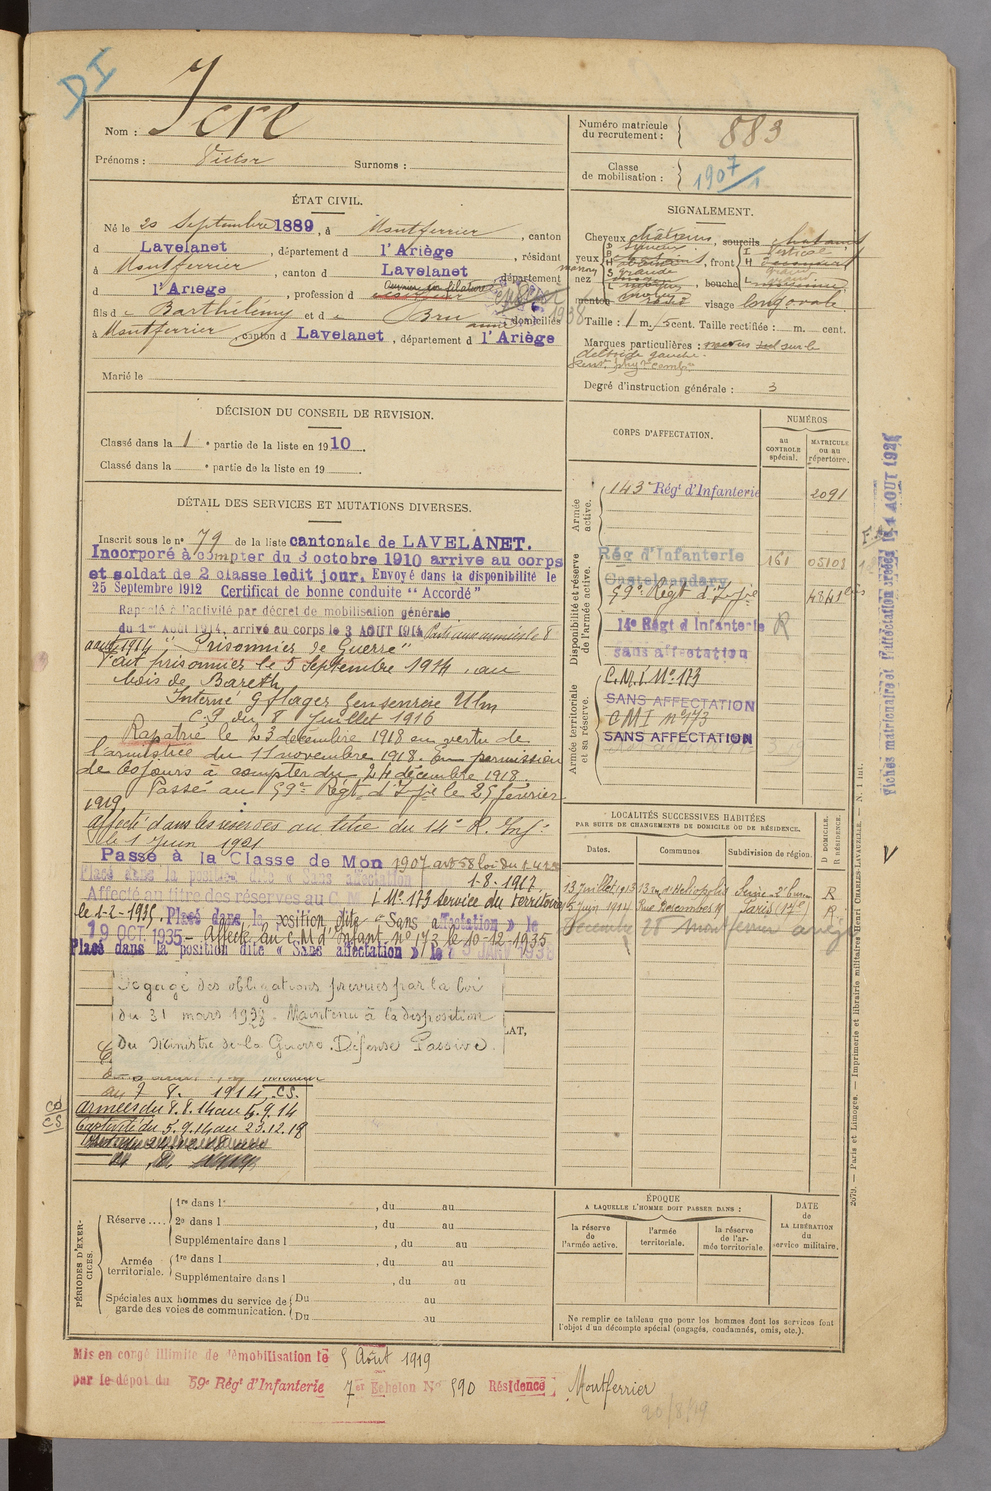 DI
Nom : Icre
Prénoms : Victor Surnoms :
Numéro matricule du recrutement : 883
Classe de mobilisation : 1907
ÉTAT CIVIL.
Né le 20 Septembre 1889, à Montferrier, canton
d Lavelanet, département d l'Ariège, résidant
à Montferrier, canton d Lavelanet, département
d l'Ariège, profession d ouvrier en filature
fils d Barthélémy et d Bru domiciliés
à Montferrier, canton d Lavelanet, département d l'Ariège
Marié le
SIGNALEMENT.
Cheveux châtains, sourcils
yeux , front
nez , bouche
menton visage long ovale
Taille : 1 m. cent. Taille rectifiée : m. cent.
Marques particulières : sur le
deltoïde gauche.
Degré d'instruction générale : 3
DÉCISION DU CONSEIL DE REVISION.
Classé dans la 1 e partie de la liste en 1910.
Classé dans la e partie de la liste en 19
DÉTAIL DES SERVICES ET MUTATIONS DIVERSES.
Inscrit sous le no 79 de la liste cantonale de LAVELANET.
Incorporé à compter du 3 octobre 1910 arrive au corps
et soldat de 2 classe ledit jour. Envoyé dans la disponibilité le
25 Septembre 1912 Certificat de bonne conduite "Accordé"
Rappelé à l'activité par décret de mobilisation générale
du 1er Août 1914, arrivé au corps le 3 AOUT 1914 Parti aux armées le 8
août 1914 "Prisonnier de Guerre"
Fait prisonnier le 5 Septembre 1914, au
bois de Bareth
Interné Ulm
C.P. du 8 Juillet 1916
Rapatrié le 23 décembre 1918 en vertu de
l'armistice du 11 novembre 1918. En permission
de 60 jours à compter du 24 décembre 1918.
Passé au 59e Régt d'Ifie le 25 février
1919
affecté dans les réserves au titre du 14e R. Inf.
le 1 Juin 1921
Passé à la Classe de Mon 1907 art 58 loi du 1.4.23
Placé dans la position dite « Sans affectation
Affecté au titre des réserves au C. M. I No 173 service du Territoire
Placé dans la position dite « Sans affectation » le
19 OCT. 1935 - Affecté au C.M. d'Infant. no 173 le 10-12-1935
Placé dans la position dite « Sans affectation » le JANV 1938
Dégagé des obligations prévues par la loi
du 31 mars 1928. Maintenu à la disposition
du Ministre de la Guerre. Défense Passive.
LAT,
C.S.
armées du 8.8.14 au 5.9.14
Captivité du 5.9.14 au 23.12.18
CORPS D'AFFECTATION.
NUMÉROS
au CONTROLE spécial.
MATRICULE ou au répertoire.
Armée active.
143e Régt d'Infanterie 2091
Disponibilité et réserve de l'armée active.
Rég d'Infanterie 161 05108
Castelnaudary
59e Régt d'Ifie
14e Régt d Infanterie R
sans affectation
Armée territoriale et sa réserve.
C.M.I No 173
SANS AFFECTATION
CMI no 173
SANS AFFECTATION
Fiches matricules et d'affectation créées le 4 AOUT 1926
LOCALITÉS SUCCESSIVES HABITÉES
PAR SUITE DE CHANGEMENTS DE DOMICILE OU DE RÉSIDENCE.
Dates. Communes. Subdivision de région. D DOMICILE. R RÉSIDENCE.
13 Juillet 1913 13 rue d'Héliopolis Seine 2e Bureau R
5 Juin 1914 Rue Descombes Paris (17e) R
Décembre 28 Montferrier ariège
PÉRIODES D'EXERCICES.
Réserve.... 1re dans l , du au
2e dans l , du au
Supplémentaire dans l , du au
Armée territoriale. 1re dans l , du au
Supplémentaire dans l , du au
Spéciales aux hommes du service de garde des voies de communication. Du au
Du au
ÉPOQUE
A LAQUELLE L'HOMME DOIT PASSER DANS :
la réserve de l'armée active.
l'armée territoriale.
la réserve de l'armée territoriale.
DATE de LA LIBÉRATION du service militaire.
Ne remplir ce tableau que pour les hommes dont les services font
l'objet d'un décompte spécial (engagés, condamnés, omis, etc.).
2079. — Paris et Limoges. — Imprimerie et librairie militaires Henri CHARLES-LAVAUZELLE. — N. 1 int.
Mis en congé illimité de démobilisation le 5 Août 1919
par le dépôt du 59e Régt d'Infanterie 7e Echelon No 590 Résidence Montferrier
20/8/19